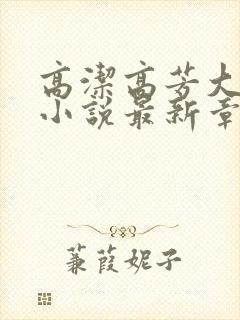 高潔高芳大
小說最新章
蒹葭妮子